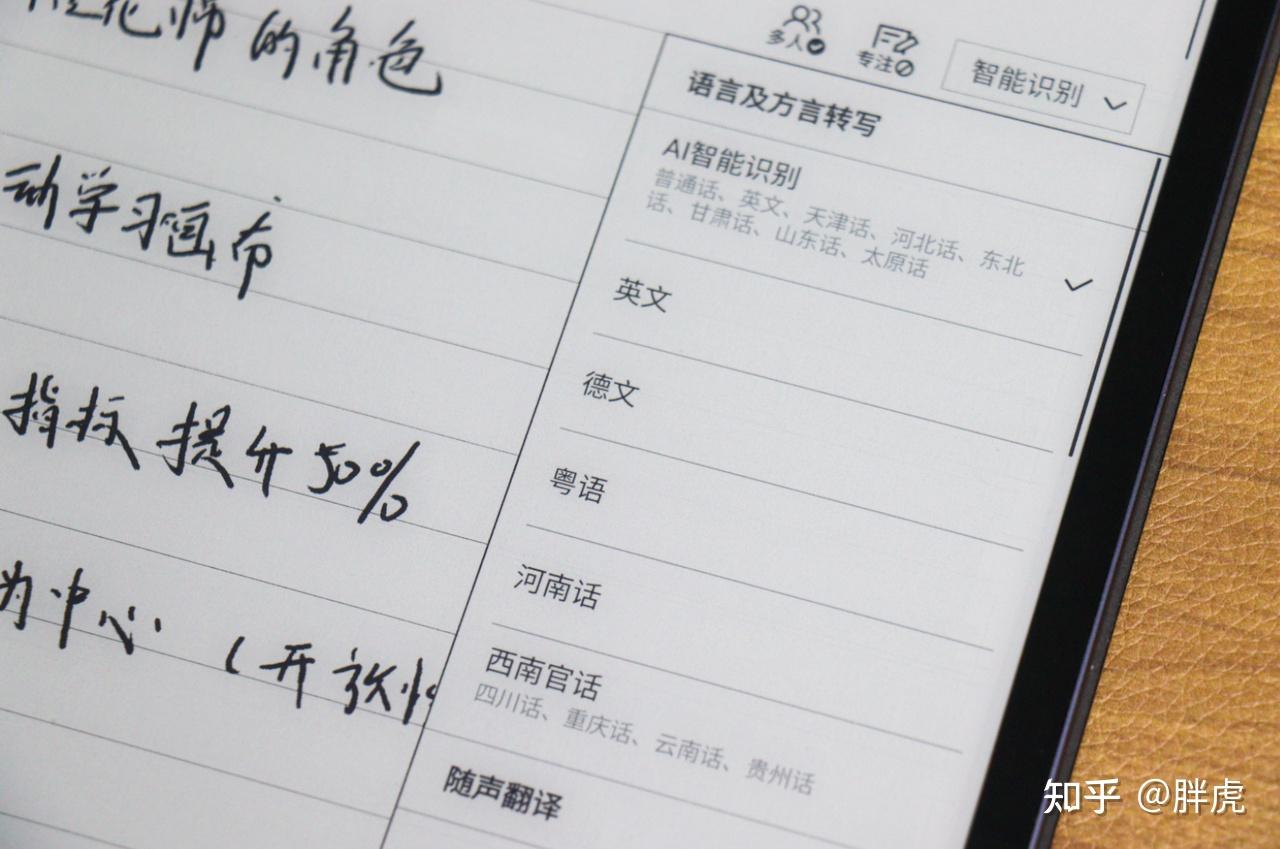 化师的角色
动学习画布
指标提升50%
为中心（开放性
多人
专注
智能识别
语言及方言转写
AI智能识别
普通话、英文、天津话、河北话、东北
话、甘肃话、山东话、太原话
英文
德文
粤语
河南话
西南官话
四川话、重庆话、云南话、贵州话
随声翻译
知乎 @胖虎